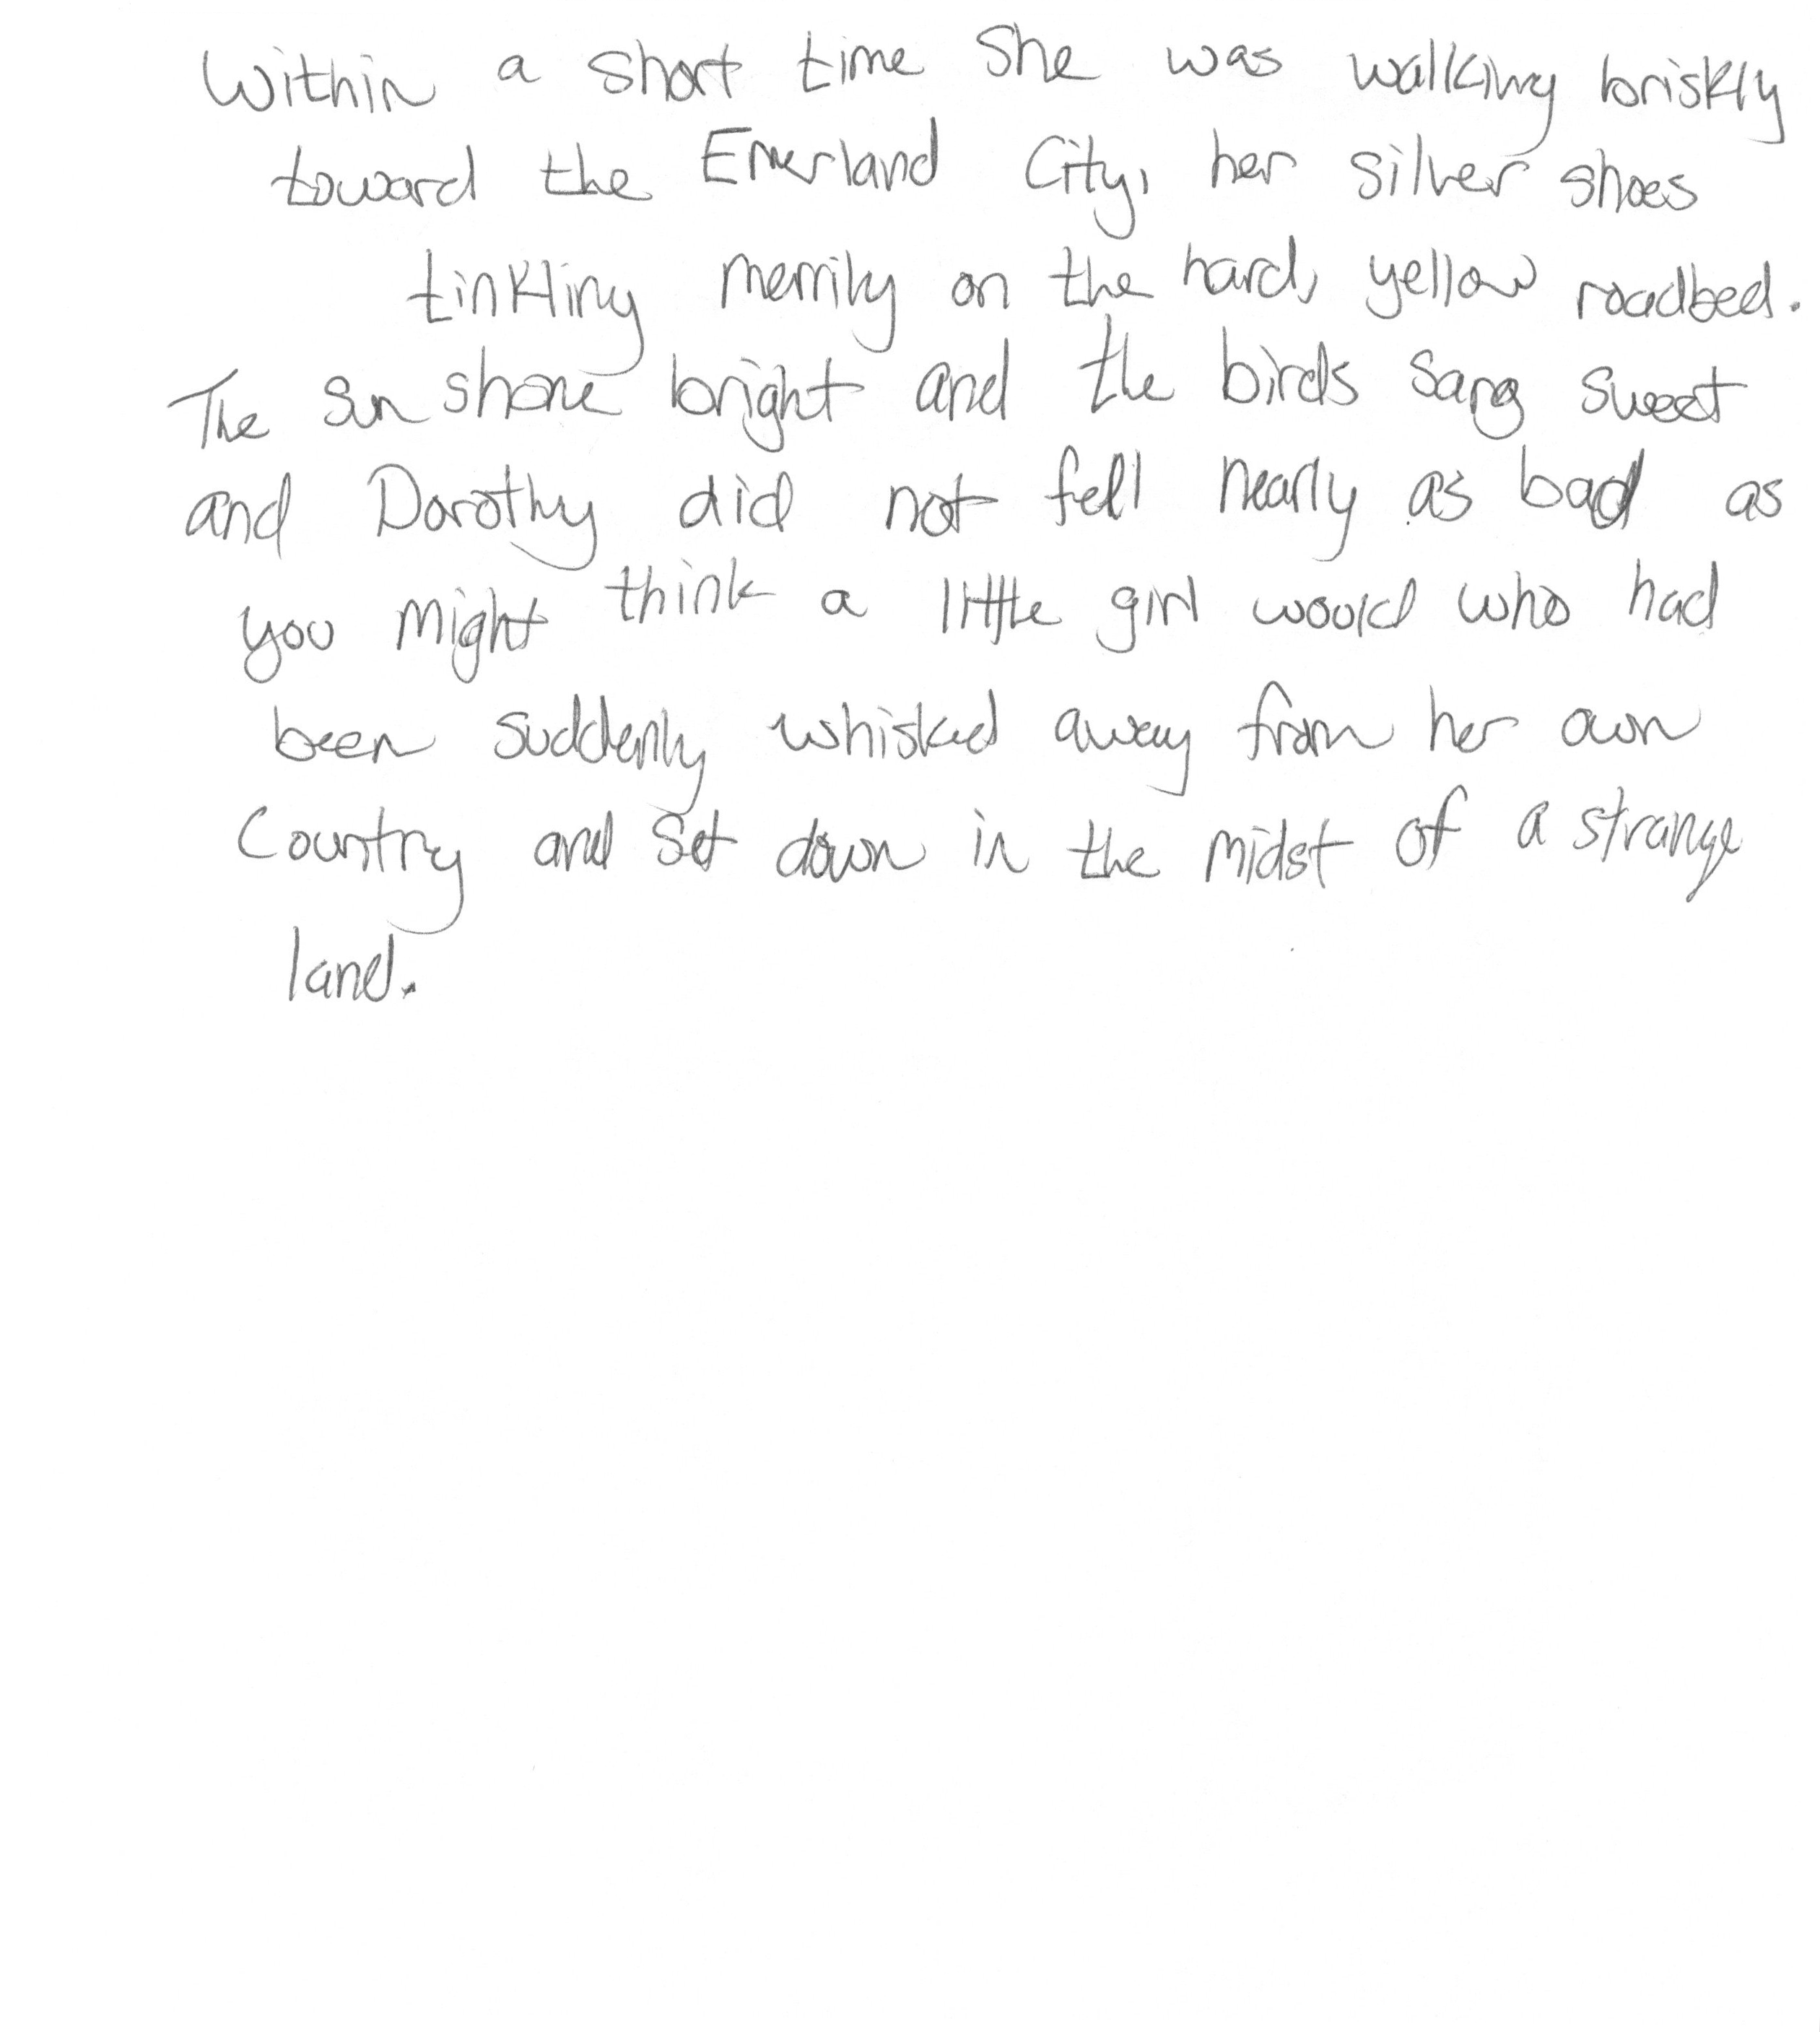 Within a short time she was walking briskly
toward the Emerland City, her silver shoes
tinkling merrily on the hard, yellow roadbed.
The sun shone bright and the birds sang sweet
and Dorothy did not fell nearly as bad as
you might think a little girl would who had
been suddenly whisked away from her own
Country and set down in the midst of a strange
land.